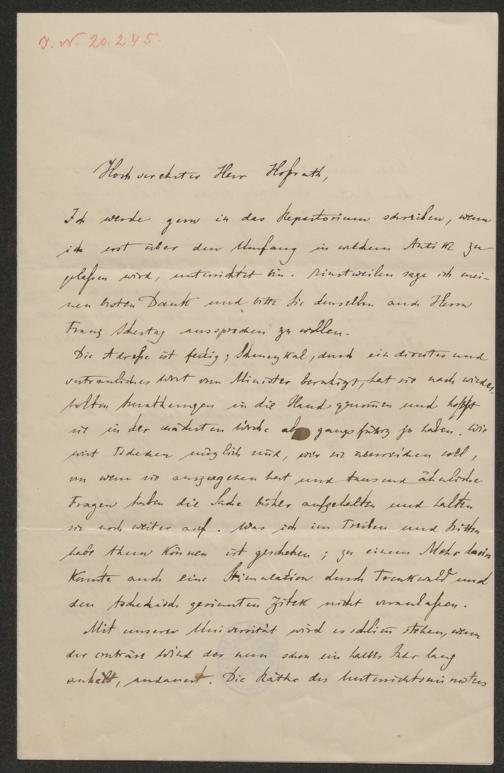 J. N. 20.245.
Hochverehrter Herr Hofrath,
Ich werde gern in das Repertorium schreiben, wenn
ich erst über den Umfang in welchem Antike zu
gelassen wird, unterrichtet bin. Einstweilen sage ich mei-
nen besten Dank und bitte Sie denselben auch Herrn
Franz Schestag aussprechen zu wollen.
Die Adresse ist fertig; durch ein directes und
vertrauliches Wort vom Minister beruhigt, hat sie nach wieder
holten in die Hand genommen und hofft
sie in der nächsten Woche gangsfähig zu haben. Wie
wird möglich sind, wer sie überreichen soll,
von wem sie ausgegangen hast und tausend ähnliche
Fragen haben die Sache bisher aufgehalten und halten
sie noch weiter auf. Was ich im Treiben und Bitten
habe thun können ist geschehen; zu einem Mehr
konnte auch eine Stimulation durch Trenkwald und
den tschechisch gesinnten Zitek nicht veranlassen.
Mit unserer Universität wird es schlimm stehen, wenn
der conträre Wind der nun schon ein halbes Jahr lang
anhält, andauert. Die Räthe des Unterrichtsministers